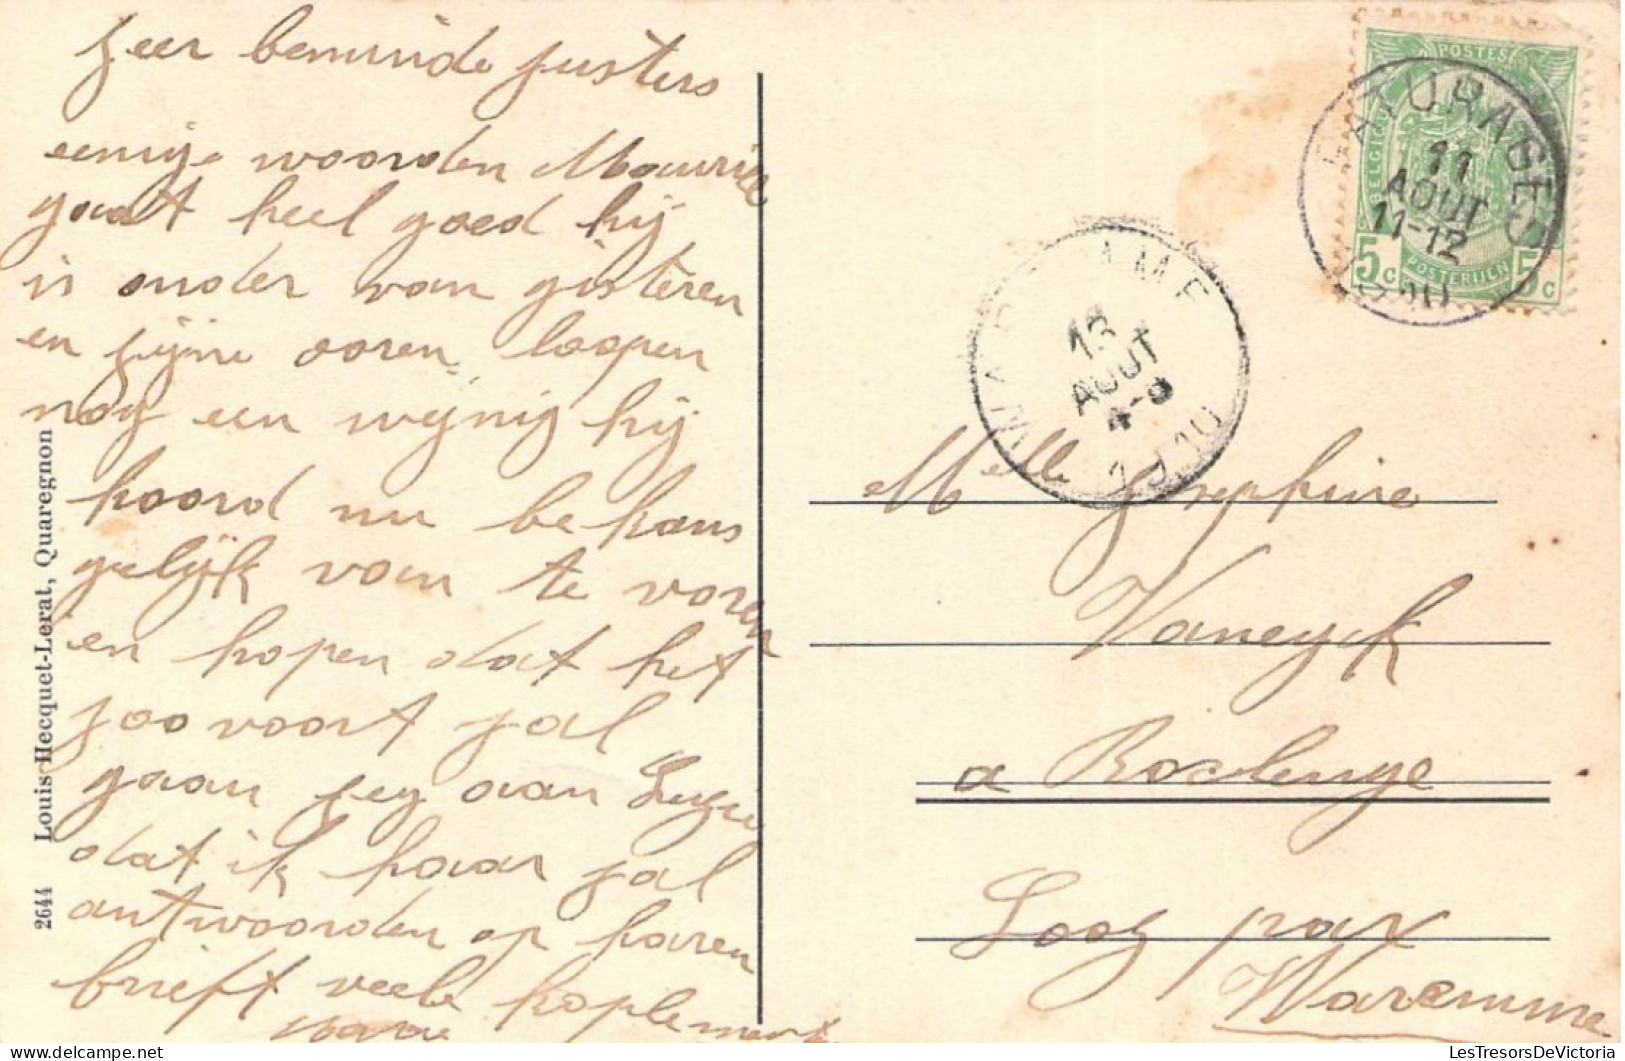 zeer beminde zusters
eenige woorden Maurice
gaat heel goed hij
is onder van gisteren
en zijne ooren loopen
nog een wijnig hij
hoord nu be kans
gelijk van te voren
en hopen dat het
zoo voort zal
gaan zeg aan
dat ik haar zal
antwoorden op haren
brieft veele koplementen
2644 Louis Hecquet-Lerat, Quaregnon
POSTES
BELGIQUE
5c POSTERIJEN 5c
PATURAGES
11
AOUT
11-12
WAREMME
13
AOUT
4-8
Melle Josephine
Vaneyck
a
Looz par
Waremme
LesTresorsDeVictoria